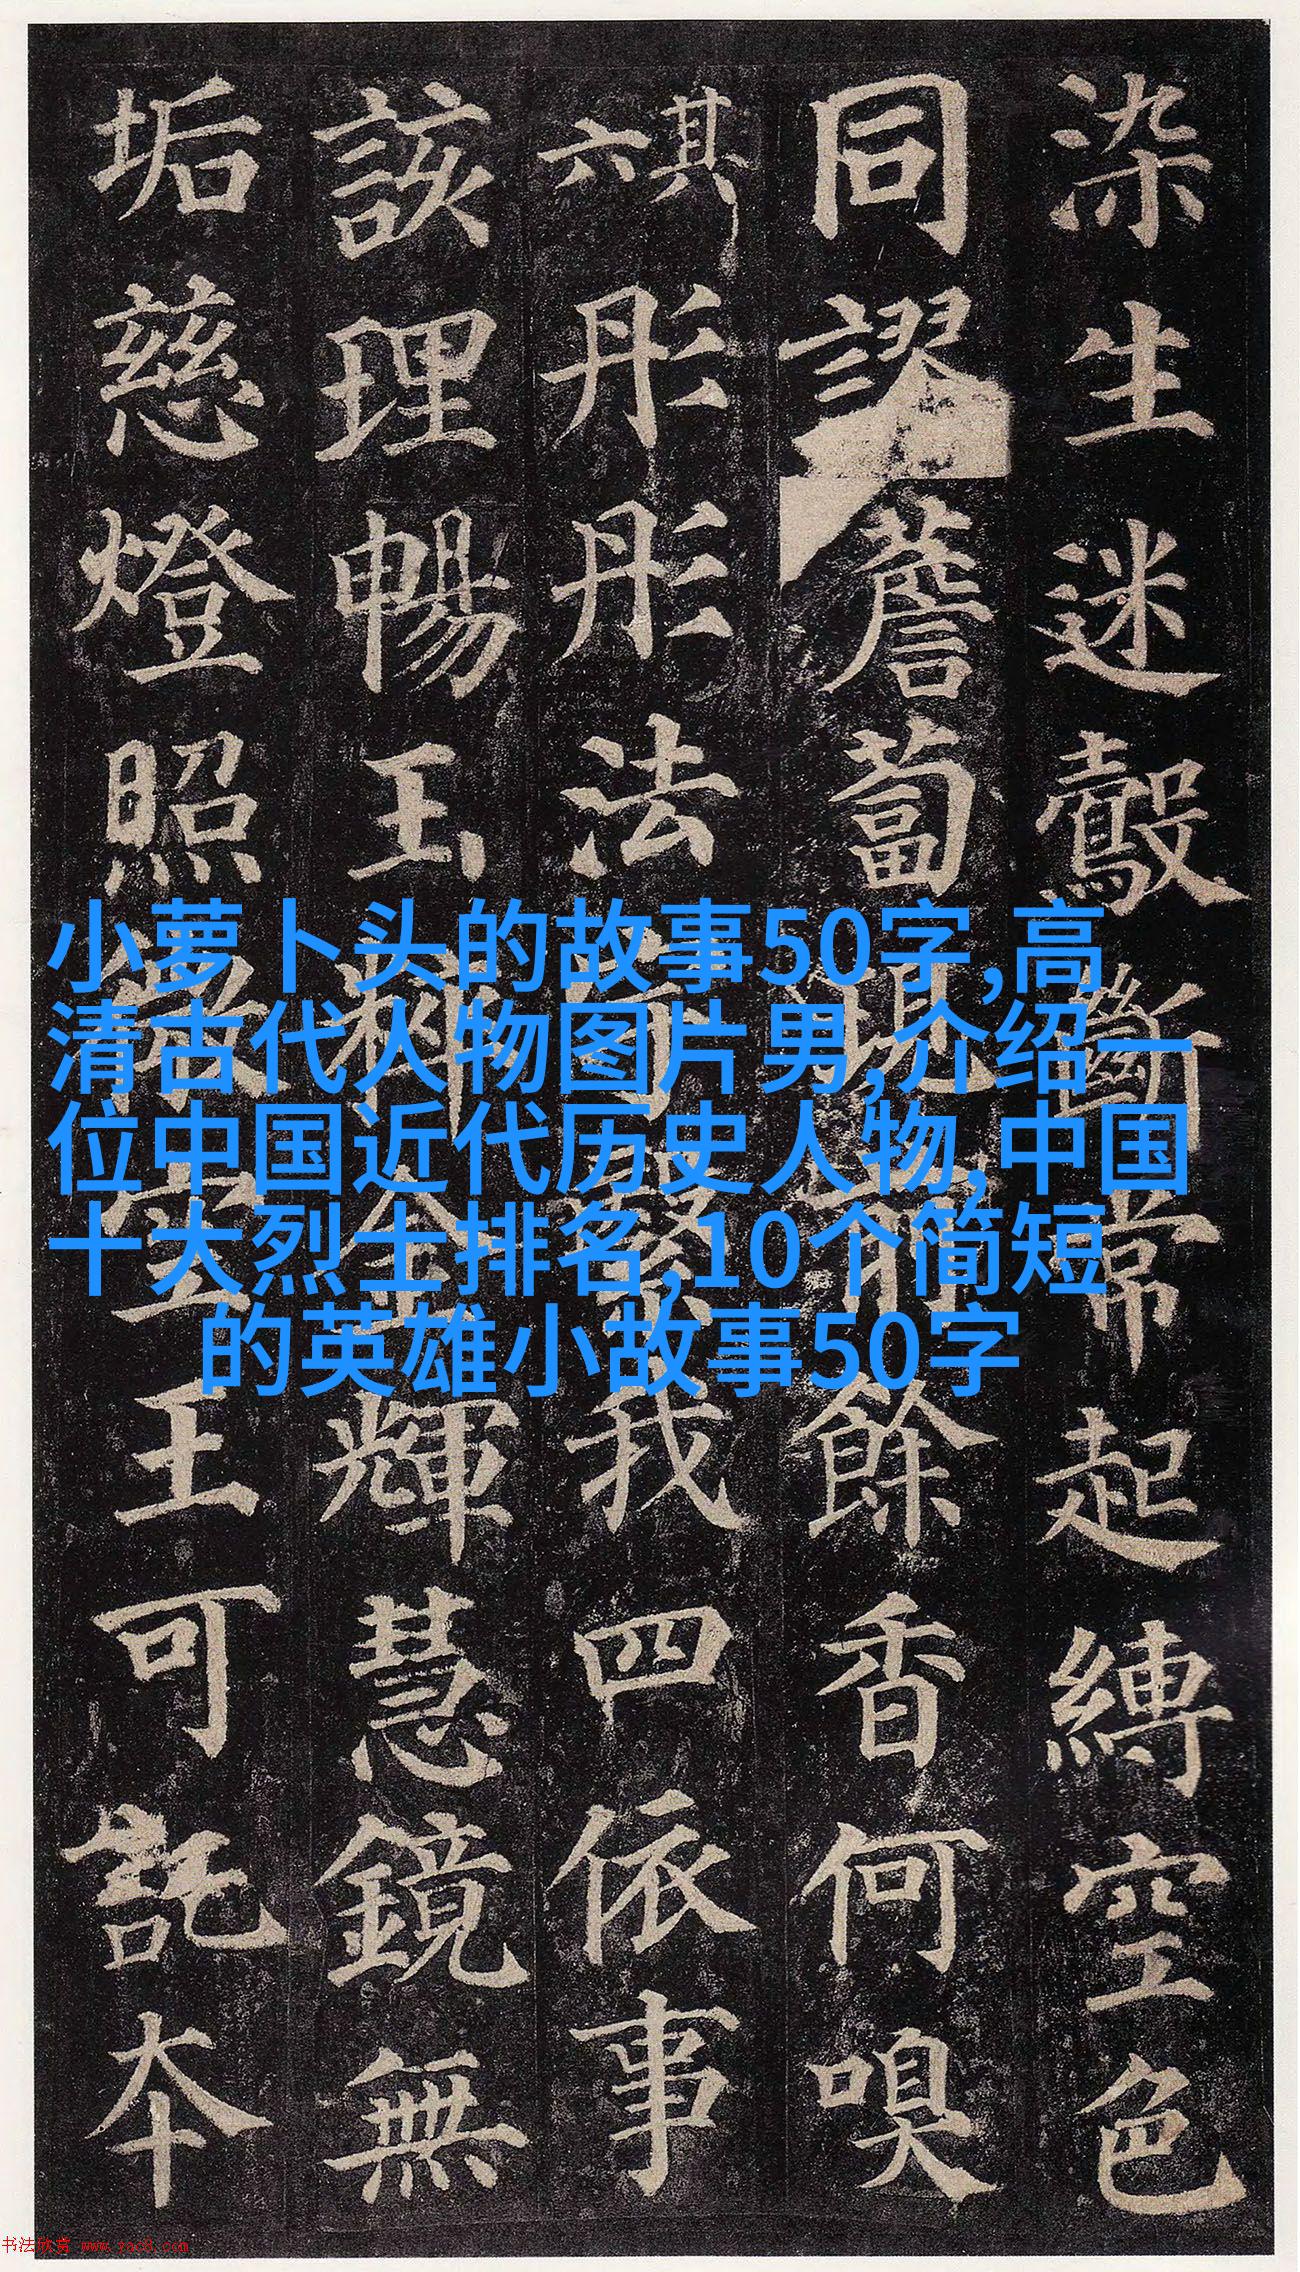 染生迷鷇斷常起縛空色
同謬薝蔔現前餘香何嗅
其六彤彤法宇繄我四依事
該理暢玉粹金輝慧鏡無
垢慈燈照微空王可託本
小萝卜头的故事50字,高
清古代人物图片男,介绍一
位中国近代历史人物,中国
十大烈士排名,10个简短
的英雄小故事50字
书法欣赏 www.yac8.com